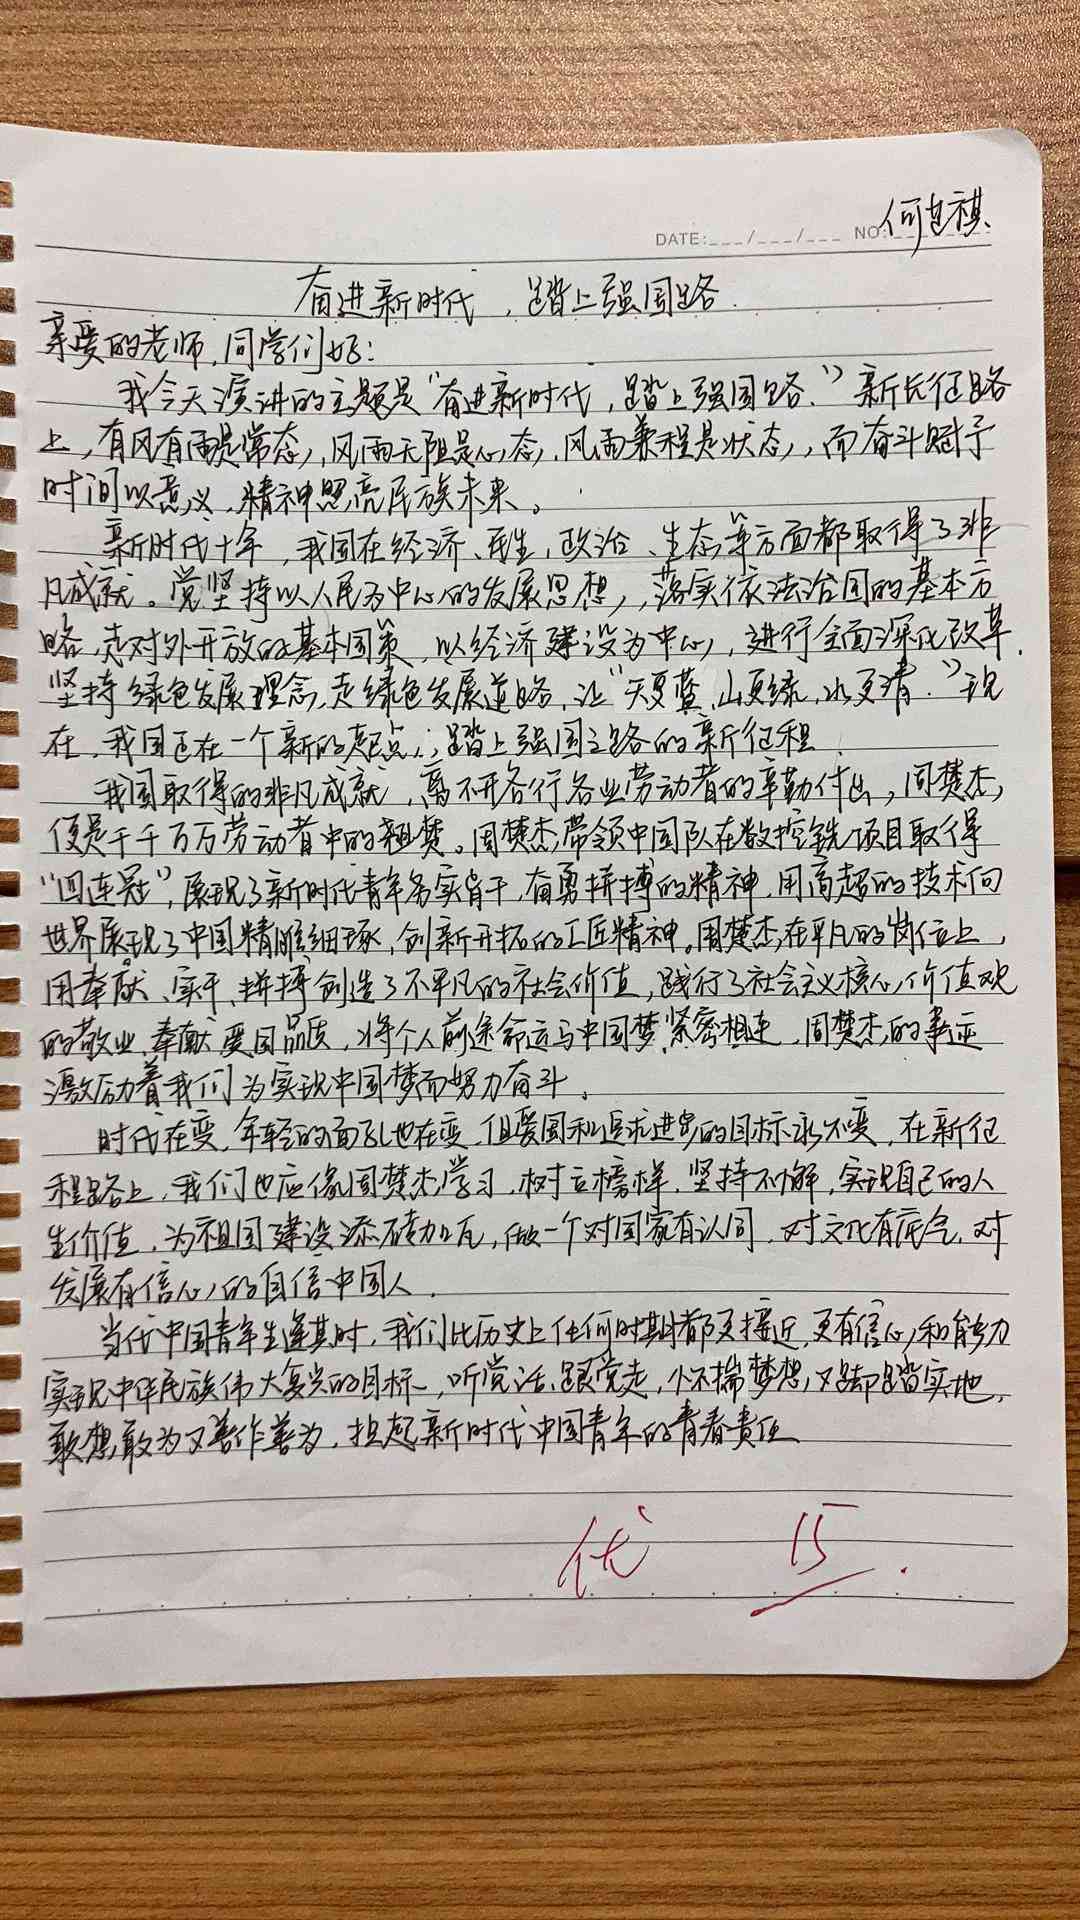 DATE:___/___/___ NO:
奋进新时代，踏上强国路.
亲爱的老师,同学们好:
我今天演讲的主题是“奋进新时代，踏上强国路.”新长征路
上，有风有雨是常态，风雨无阻是心态，风雨兼程是状态，而奋斗赋予
时间以意义，精神照亮民族未来。
新时代十年，我国在经济、民生、政治、生态等方面都取得了非
凡成就。党坚持以人民为中心的发展思想，落实依法治国的基本方
略,走对外开放的基本国策，以经济建设为中心，进行全面深化改革.
坚持绿色发展理念,走绿色发展道路,让“天更蓝,山更绿,水更清.”现
在,我国正在一个新的起点,踏上强国之路的新征程.
我国取得的非凡成就，离不开各行各业劳动者的辛勤付出，周楚杰,
便是千千百万劳动者中的翘楚。周楚杰,带领中国队在数控铣项目取得
“四连冠”,展现了新时代青年务实肯干,奋勇拼搏的精神,用高超的技术向
世界展现了中国精雕细琢,创新开拓的工匠精神。周楚杰,在平凡的岗位上,
用奉献、实干、拼搏创造了不平凡的社会价值,践行了社会主义核心价值观
的敬业、奉献、爱国品质,将个人前途命运与中国梦紧密相连,周楚杰的事迹
激励着我们为实现中国梦而努力奋斗.
时代在变,年轻的面孔也在变,但爱国和追求进步的目标永不变,在新征
程路上,我们也应像周楚杰学习,树立榜样,坚持不懈,实现自己的人
生价值,为祖国建设添砖加瓦,做一个对国家有认同,对文化有底气,对
发展有信心的自信中国人.
当代中国青年生逢其时,我们比历史上任何时期都更接近,更有信心和能力
实现中华民族伟大复兴的目标,听党话,跟党走,怀揣梦想,又脚踏实地,
敢想敢为又善作善为,担起新时代中国青年的青春责任
优 15.